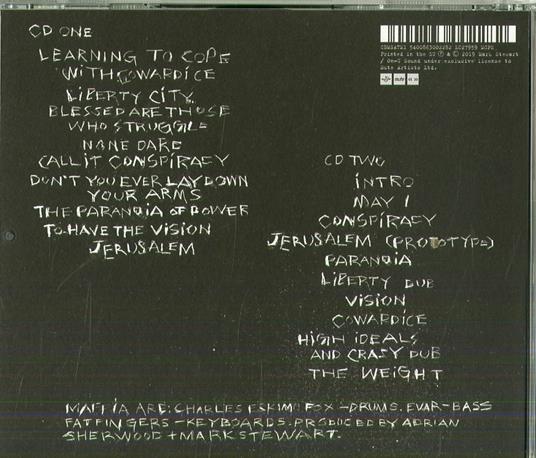 CD ONE
LEARNING TO COPE
WITH COWARDICE
LIBERTY CITY
BLESSED ARE THOSE
WHO STRUGGLE
NONE DARE
CALL IT CONSPIRACY
DON'T YOU EVER LAY DOWN
YOUR ARMS
THE PARANOIA OF POWER
TO HAVE THE VISION
JERUSALEM
CD TWO
INTRO
MAY 1
CONSPIRACY
JERUSALEM (PROTOTYPE)
PARANOIA
LIBERTY DUB
VISION
COWARDICE
HIGH IDEALS
AND CRAZY DUB
THE WEIGHT
MAFFIA ARE: CHARLES ESKIMO FOX - DRUMS. EVAR - BASS
FATFINGERS - KEYBOARDS. PRODUCED BY ADRIAN
SHERWOOD + MARK STEWART.
5400863003282
Printed in the EU ℗ & © 2019 Mark Stewart
/ On-U Sound under exclusive license to
Mute Artists Ltd.
mute